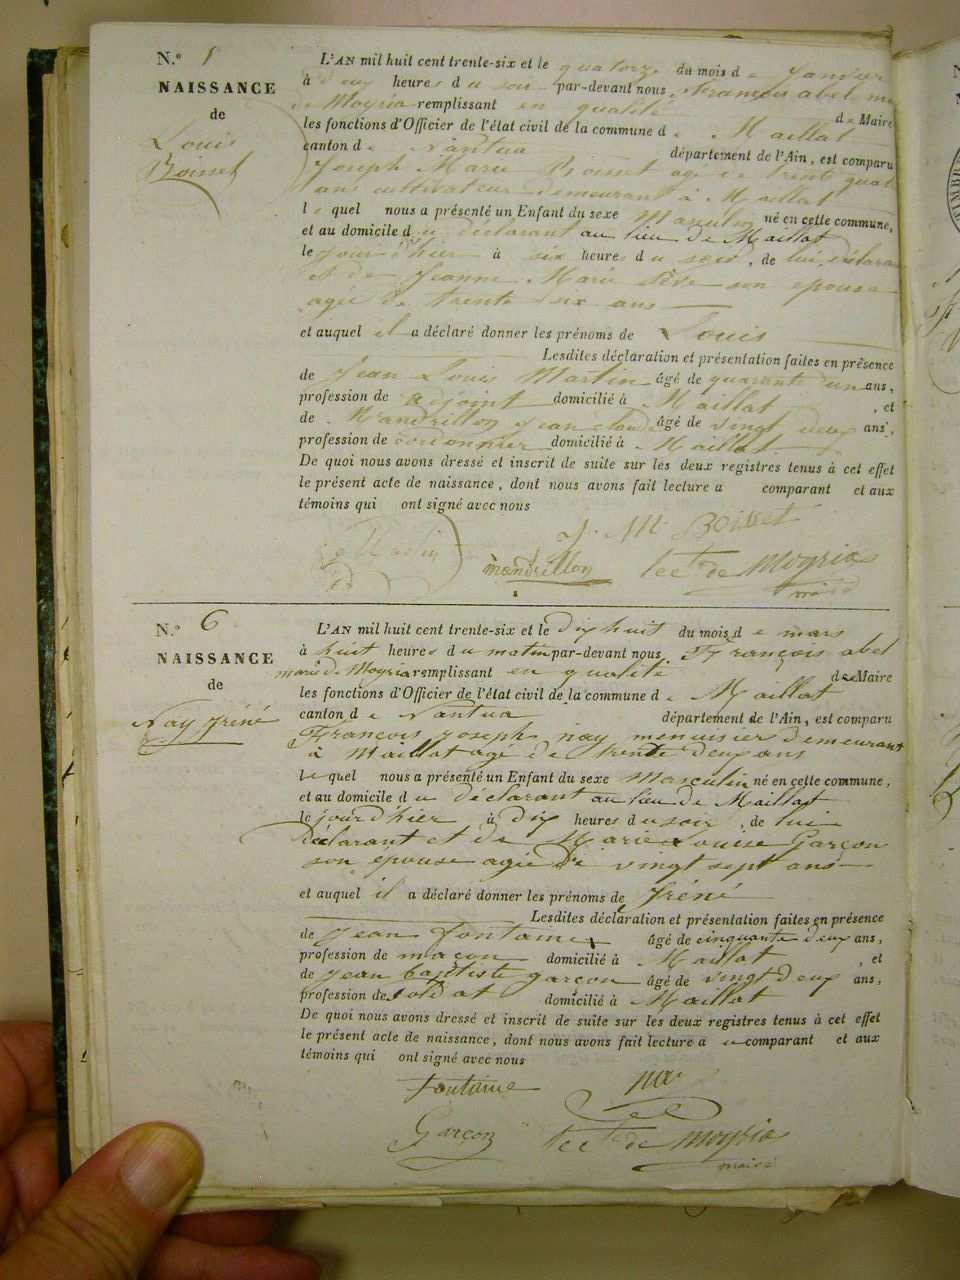 N.º 1
NAISSANCE
de
Louis
Boisset
L'AN mil huit cent trente-six et le quatorze du mois de Janvier
à deux heures du soir par-devant nous, François abel
de Moyria remplissant en qualité de Maire
les fonctions d'Officier de l'état civil de la commune de Maillat
canton de Nantua département de l'Ain, est comparu
Joseph Marie Boisset agé de trente quat
ans cultivateur demeurant à Maillat
lequel nous a présenté un Enfant du sexe Masculin né en cette commune,
et au domicile du déclarant au lieu de Maillat
le jour d'hier à six heures du soir, de lui déclara
et de Jeanne Marie son epouse
agée de trente six ans
et auquel il a déclaré donner les prénoms de Louis
Lesdites déclaration et présentation faites en présence
de Jean Louis Martin âgé de quarante un ans,
profession de adjoint domicilié à Maillat, et
de Mandrillon Jean claude âgé de vingt deux ans,
profession de cordonnier domicilié à Maillat.
De quoi nous avons dressé et inscrit de suite sur les deux registres tenus à cet effet
le présent acte de naissance, dont nous avons fait lecture a comparant et aux
témoins qui ont signé avec nous
J. M Boisset
mandrillon de Moyria
maire
N.º 6
NAISSANCE
de
Nay Iréné
L'AN mil huit cent trente-six et le dix huit du mois de mars
à huit heures du matin par-devant nous, François abel
marie de Moyria remplissant en qualité de Maire
les fonctions d'Officier de l'état civil de la commune de Maillat
canton de Nantua département de l'Ain, est comparu
François Joseph nay menuisier demeurant
à Maillat agé de trente deux ans
lequel nous a présenté un Enfant du sexe Masculin né en cette commune,
et au domicile du déclarant au lieu de Maillat
le jour d'hier à dix heures du soir, de lui
déclarant et de Marie Louise Garçon
son epouse agée de vingt sept ans
et auquel il a déclaré donner les prénoms de Iréné
Lesdites déclaration et présentation faites en présence
de Jean fontaine âgé de cinquante deux ans,
profession de maçon domicilié à Maillat, et
de Jean baptiste garçon âgé de vingt deux ans,
profession de soldat domicilié à Maillat
De quoi nous avons dressé et inscrit de suite sur les deux registres tenus à cet effet
le présent acte de naissance, dont nous avons fait lecture au comparant et aux
témoins qui ont signé avec nous
fontaine nay
Garçon de Moyria
maire